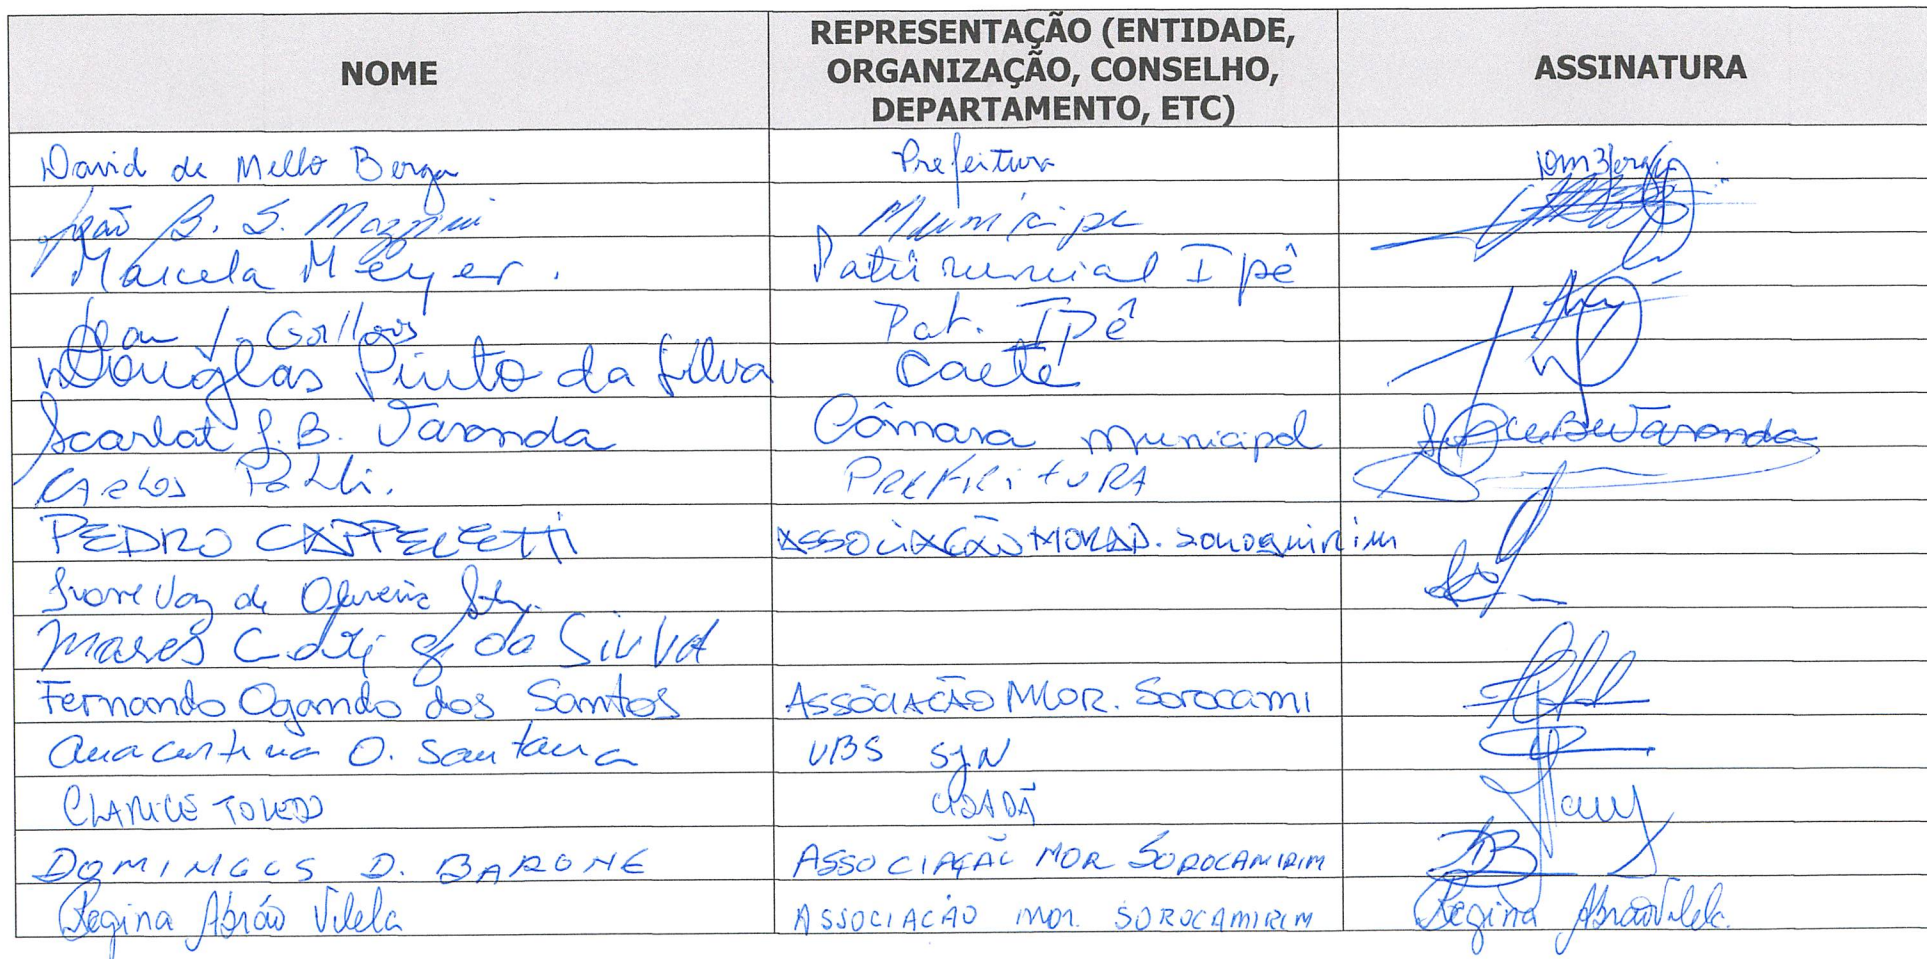 NOME
REPRESENTAÇÃO (ENTIDADE,
ORGANIZAÇÃO, CONSELHO,
DEPARTAMENTO, ETC)
ASSINATURA
David de Mello Berga Prefeitura
João B. S. Munícipe
Marcela Meyer. Patrimonial Ipê
Jean J. Pat. Ipê
Douglas Pinto da Silva Caetê
Scarlat J.B. Varonda Câmara municipal Varonda
Carlos PREFEITURA
PEDRO CAPPELLETTI ASSOCIAÇÃO MORAD. Soroquirim
Ivone Vaz de Oliveira
da SILVA
Fernando Ogando dos Santos ASSOCIAÇÃO MOR. Sorocami
Ana Cristina O. Santana UBS SJN
CLARICE TOLEDO CIDADÃ
DOMINGOS D. BARONE ASSOCIAÇÃO MOR SOROCAMIRIM
Regina Abrão Vilela ASSOCIAÇÃO MOR. SOROCAMIRIM Regina Abrão Vilela.